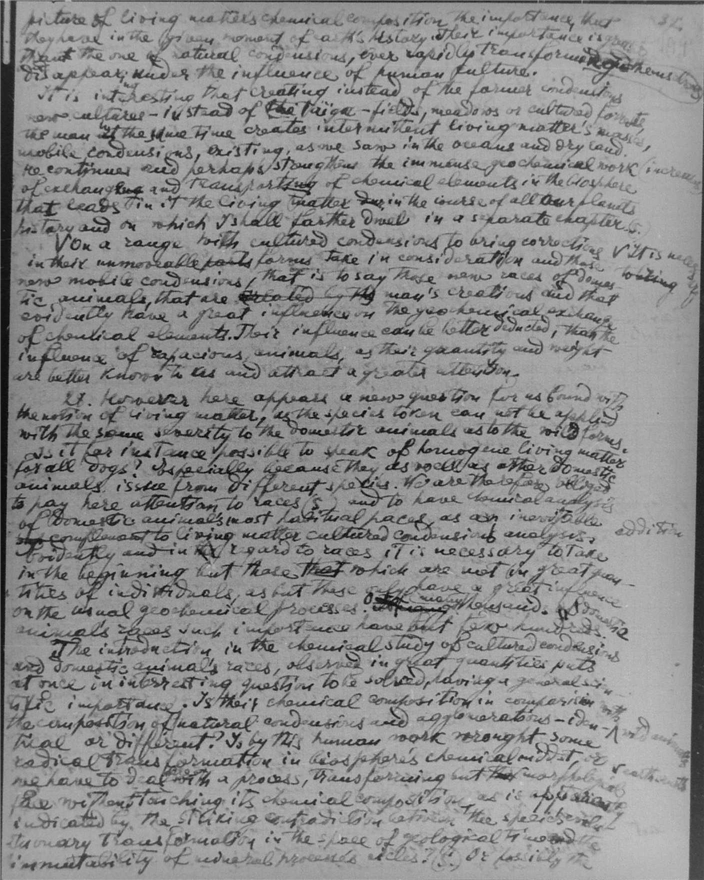 picture of living matter's chemical composition the importance, that
they have in the given moment of earth's history. Their importance is
than the one of natural condensions, ever rapidly transforming
disappear, under the influence of human culture.
It is interesting that creating instead of the former condensions
new cultures – instead of the taiga – fields, meadows or cultured forests
the man at the same time creates intermittent living matter's masses,
mobile condensions, existing, as we saw in the oceans and dry land.
He continues and perhaps strengthens the immense geochemical work (increases)
of exchanging and transporting of chemical elements in the biosphere
that leads in it the living matter in the course of all our planets
history and on which I shall farther dwel in a separate chapter
On a range with cultured condensions to bring correction V It is necessary
in their unmoveable parts forms take in consideration and those
new mobile condensions, that is to say those new races of domes-
tic animals, that are created by the man's creations and that
evidently have a great influence on the geochemical exchange
of chemical elements. Their influence can be better deduced, than the
influence of rapacious animals, as their quantity and weight
are better known to us and attract a greater attention.
However here appears a new question for us bound with
the notion of living matter, as the species token can not be applied
with the same severity to the domestic animals as to the wild forms.
Is it for instance possible to speak of homogene living matter
for all dogs? Especially because they as well as other domestic
animals issue from different species. We are therefore obliged
to pay here attention to races (s) and to have chemical analysis
of domestic animals most habitual races, as an inevitable addition
complement to living matter cultured condensions analysis.
Evidently and in regard to races it is necessary to take
in the beginning but those that which are not in great quan-
tities of individuals, as but these only have a great influence
on the usual geochemical processes. Of many thousands of domestic
animal's races such importance have but few hundreds.
The introduction in the chemical study of cultured condensions
and domestic animal's races, observed in great quantities puts
at once an interesting question to be solved, having a general scien-
tific importance. Is their chemical composition in comparison with
the composition of natural condensions and agglomerations – iden- wild animals
tical or different? Is by this human work wrought some
radical transformation in biosphere's chemical middst, or
we have to deal with a process, transforming but the morphological
face without touching its chemical composition, as is
indicated by the striking contradition between the species evolu-
tionary transformation in the space of geological time and the
immutability of mineral processes cicles? (s) Or possibly the